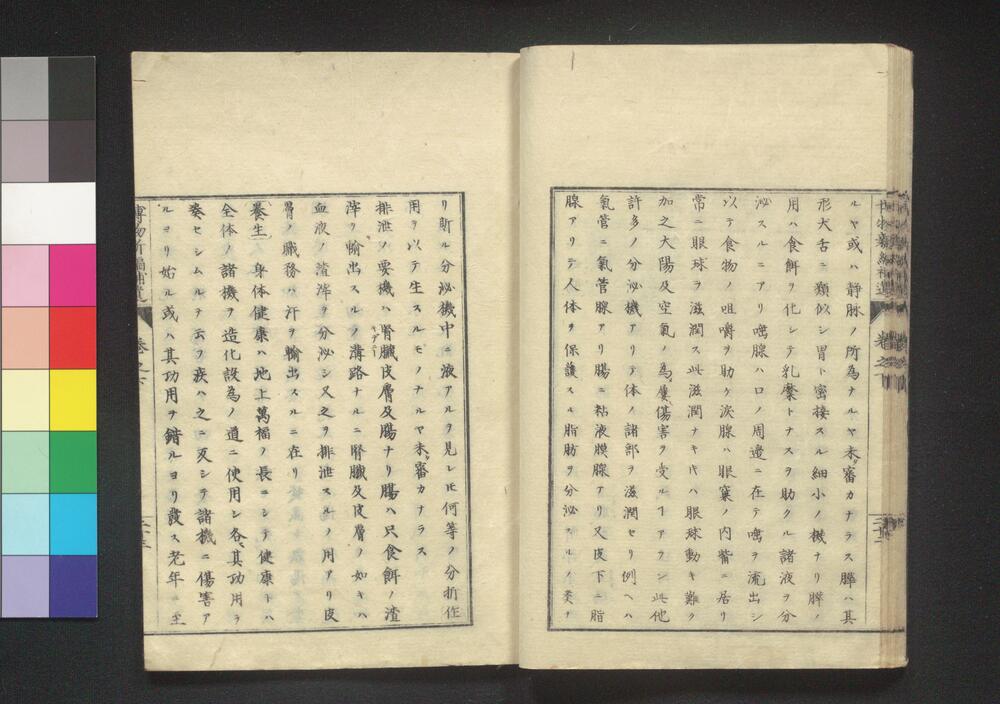 ルヤ或ハ静脉ノ所為ナルヤ未審カナラス膵ハ其
形犬舌ニ類似シ胃ト密接スル細小ノ機ナリ膵ノ
用ハ食餌ヲ化シテ乳糜トナスヲ助クル諸液ヲ分
泌スルニアリ唾腺ハ口ノ周邉ニ在テ唾ヲ流出シ
以テ食物ノ咀嚼ヲ助ケ涙腺ハ眼窠ノ内眥ニ居リ
常ニ眼球ヲ滋潤ス此滋潤ナキ𪜈ハ眼球動キ難ク
加之大陽及空氣ノ為ニ屢傷害ヲ受ルヿアラン此他
許多ノ分泌機アリテ体ノ諸部ヲ滋潤セリ例ヘハ
氣管ニ氣管腺アリ腸ニ粘液膜腺アリ又皮下ニ脂
腺アリテ人体ヲ保護スル脂肪ヲ分泌スルノ類ナ
博物新編補遺
卷之下
リ斯ル分泌機中ニ液アルヲ見レ𪜈何等ノ分拆作
用ヲ以テ生スルモノナルヤ未審カナラス
排泄ノ要機ハ腎臓皮膚及腸ナリ腸ハ只食餌ノ渣
キデニー
滓ヲ輸出スルノ溝路ナルニ腎臓及皮膚ノ如キハ
血液ノ渣滓ヲ分泌シ又之ヲ排泄スルノ用アリ皮
膚ノ職務ハ汗ヲ輸出スルニ在リ
養生 身体健康ハ地上萬福ノ長ニシテ健康トハ
全体ノ諸機ヲ造化設為ノ道ニ使用シ各其功用ヲ
奏セシムルヲ云フ疾ハ之ニ反シテ諸機ニ傷害ア
ルヨリ始ル或ハ其功用ヲ錯ルヨリ發ス老年ニ至
博物新編補遺
卷之下